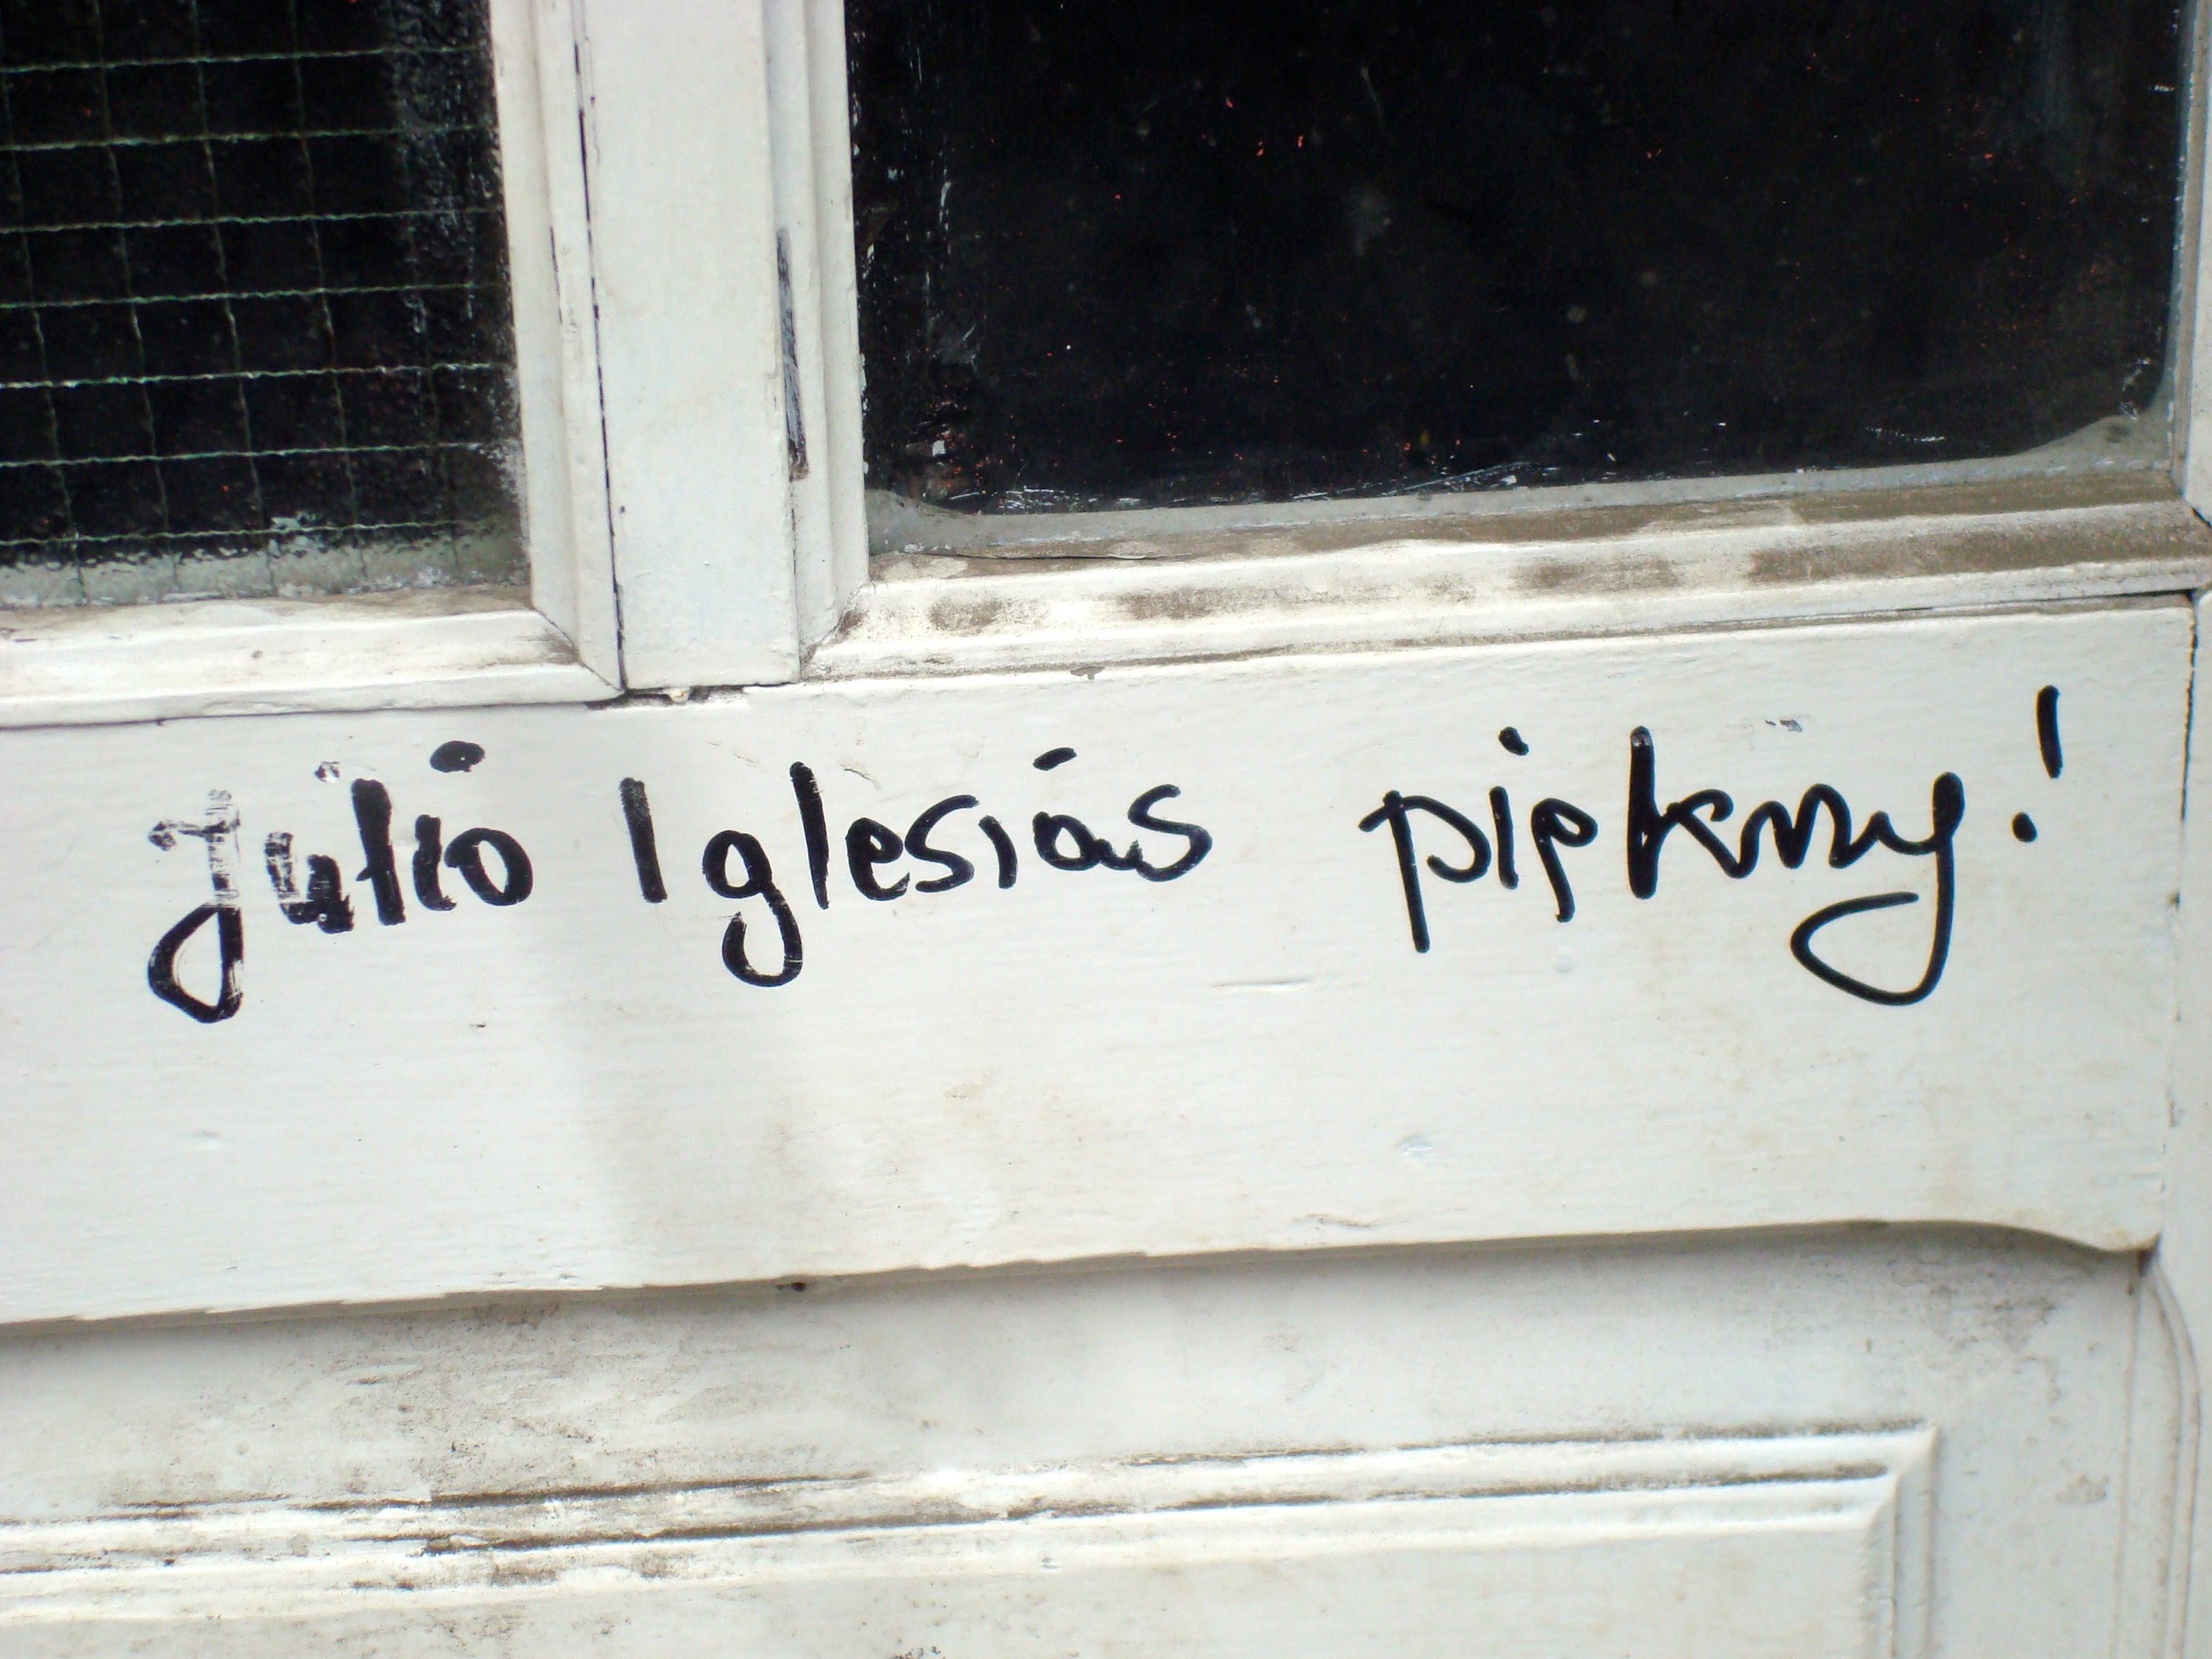 Julio Iglesias piękny!